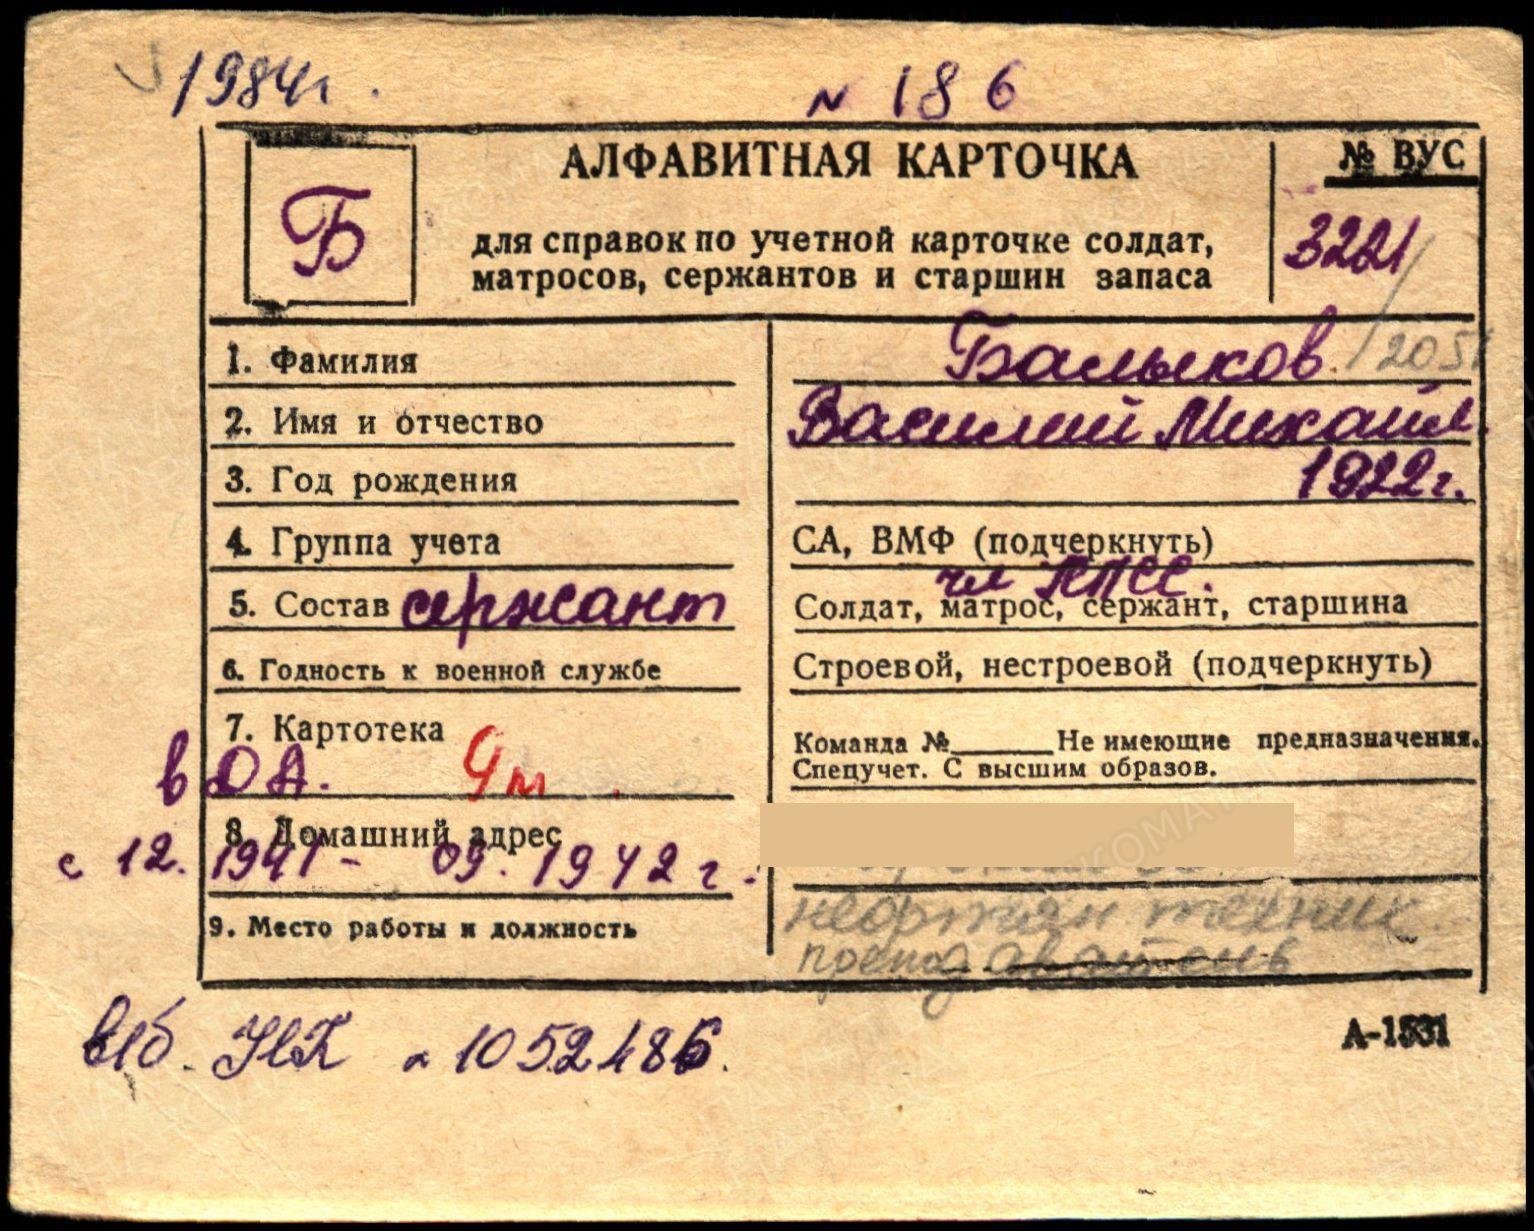 1984г.
N 186
АЛФАВИТНАЯ КАРТОЧКА
№ ВУС
Б
для справок по учетной карточке солдат,
матросов, сержантов и старшин запаса
3221/
2051
1. Фамилия Балыков
2. Имя и отчество Василий Михайл.
3. Год рождения 1922г.
4. Группа учета СА, ВМФ (подчеркнуть)
чл КПСС.
5. Состав сержант Солдат, матрос, сержант, старшина
6. Годность к военной службе Строевой, нестроевой (подчеркнуть)
7. Картотека Команда №______ Не имеющие предназначения.
Спецучет. С высшим образов.
в ДА. Ум
8. Домашний адрес
с 12. 1941 - 09. 1942 г.
9. Место работы и должность нефтян техник.
преподаватель
в/б. НК N 1052486.
А-1531
ПАМЯТИ
ВОЕНКОМАТ